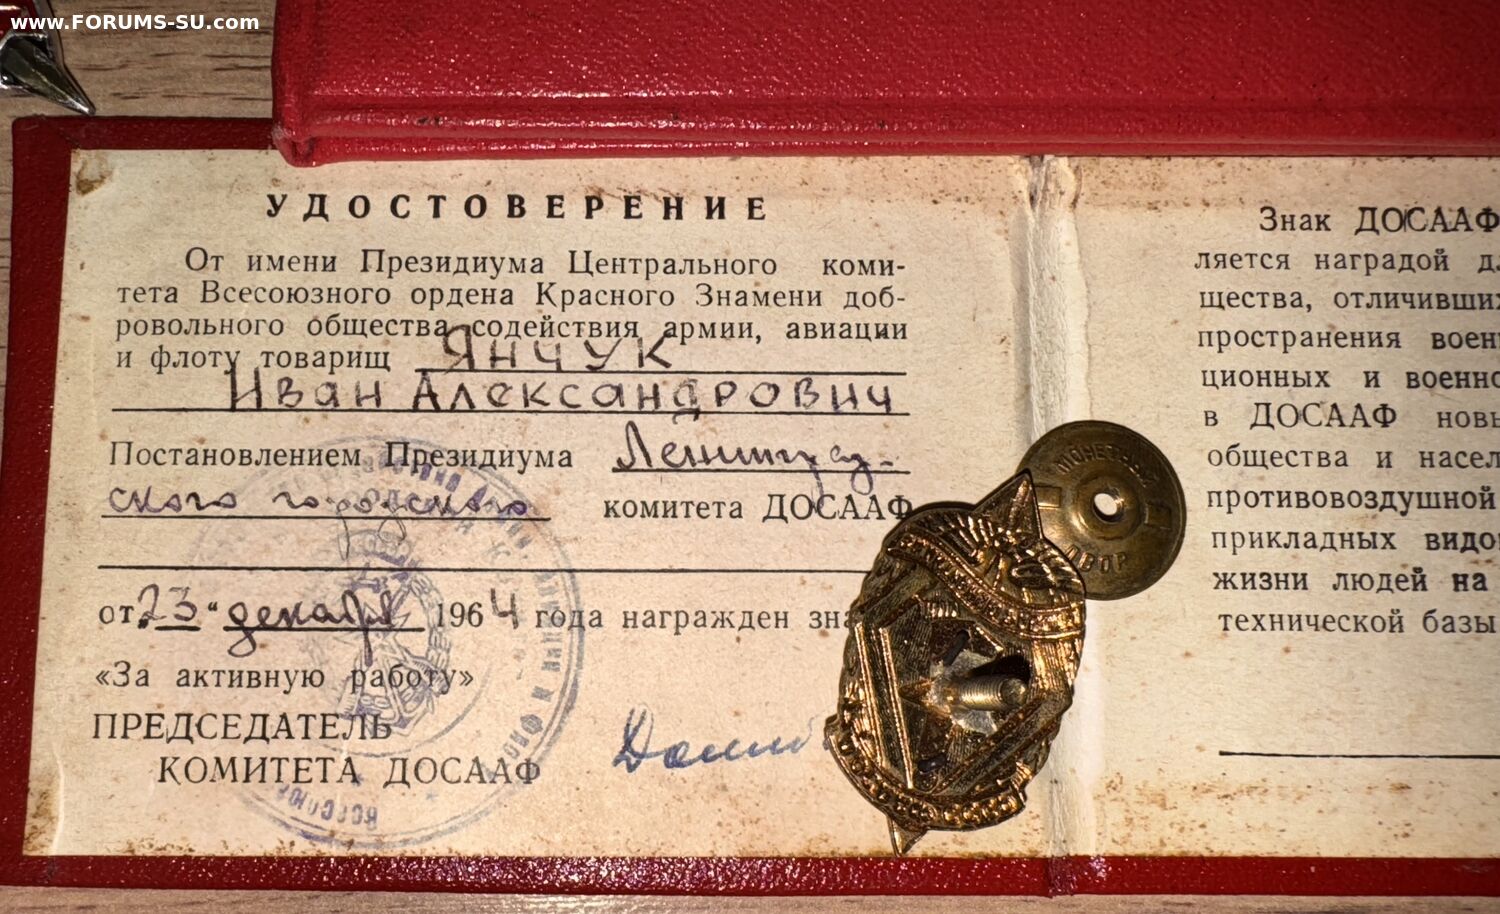 www.FORUMS-SU.com
УДОСТОВЕРЕНИЕ
От имени Президиума Центрального коми-
тета Всесоюзного ордена Красного Знамени доб-
ровольного общества содействия армии, авиации
и флоту товарищ ЯНЧУК
Иван Александрович
Постановлением Президиума Ленинград-
ского городского комитета ДОСААФ
от 23 " декабря 1964 года награжден зна
«За активную работу»
ПРЕДСЕДАТЕЛЬ
КОМИТЕТА ДОСААФ
Знак ДОСААФ
ляется наградой дл
щества, отличивших
пространения воен
ционных и военно
в ДОСААФ новы
общества и насел
противовоздушной
прикладных видо
жизни людей на
технической базы
МОНЕТНЫЙ
ДВОР